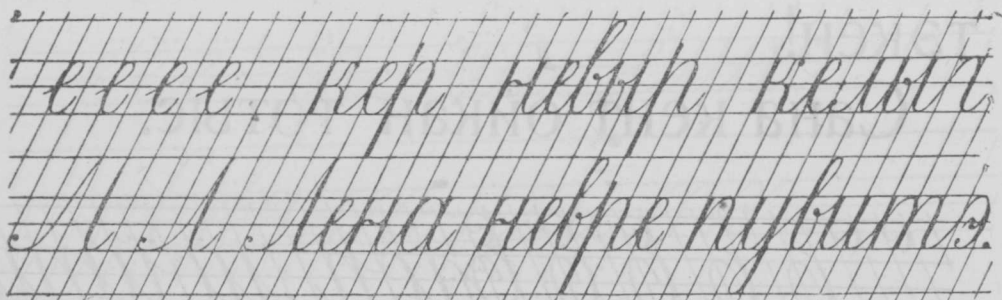 е е е е кер невыр келып
Л Л Лена невре пувитэ.